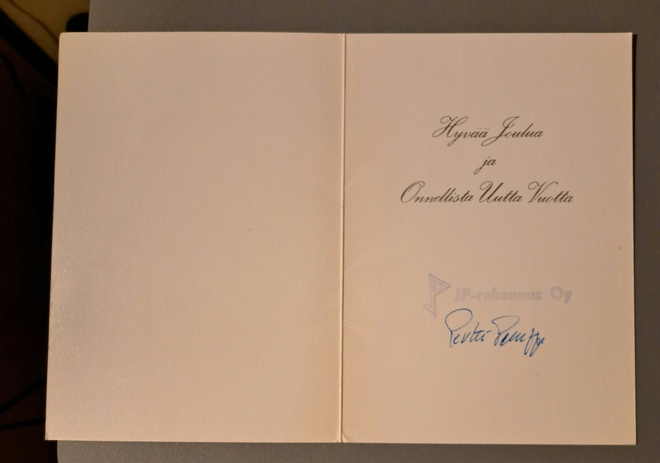 Hyvää Joulua
ja
Onnellista Uutta Vuotta
JP-rakennus Oy
Pertti